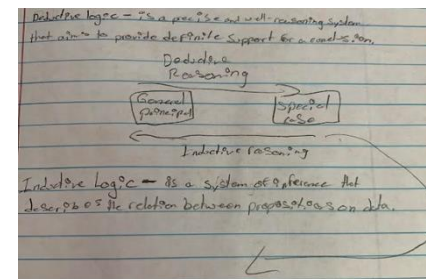 Deductive logic – is a precise and well-reasoning system
that aims to provide definite support for a conclusion.
Deductive
Reasoning
General
principal
Special
case
Inductive reasoning
Inductive Logic – is a system of inference that
describes the relation between propositions on data.